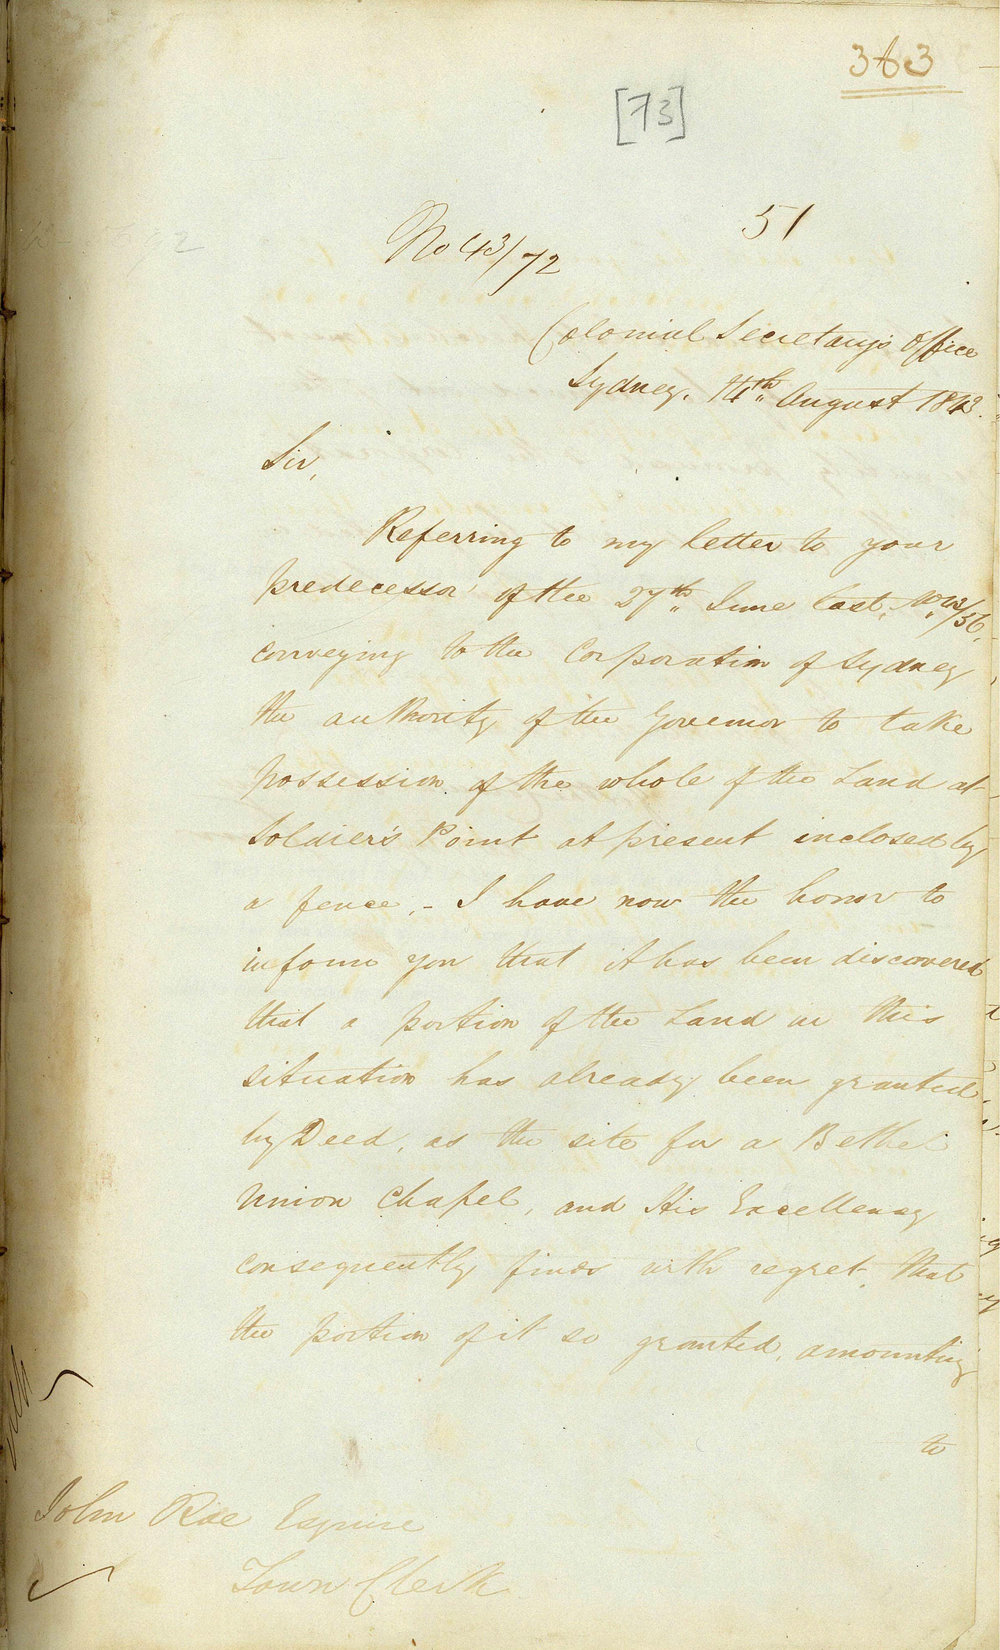 383
[73]
51
No 43/72
Colonial Secretary's Office
Sydney. 14th August 1843.
Sir,
Referring to my letter to your
predecessor of the 27th June last, No. 43/56,
conveying to the Corporation of Sydney
the authority of the Governor to take
possession of the whole of the Land at
Soldier's Point at present inclosed by
a fence, - I have now the honor to
inform you that it has been discovered
that a portion of the Land in this
situation has already been granted
by Deed, as the site for a Bethel
Union Chapel, and His Excellency
consequently finds with regret that
the portion of it so granted, amounting
to
John Rae Esquire
Town Clerk